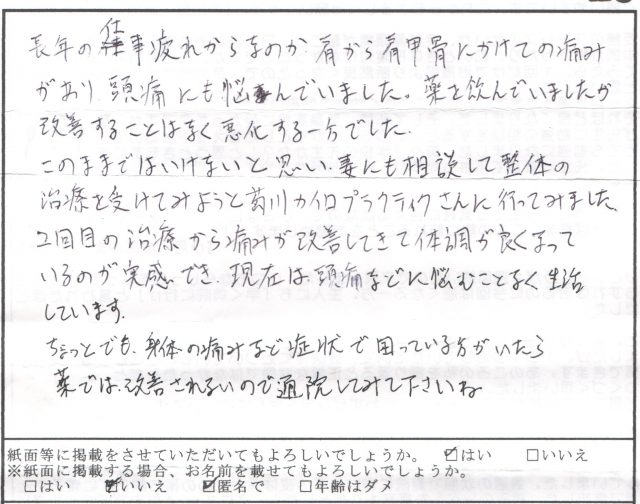 長年の仕事疲れからなのか、肩から肩甲骨にかけての痛み
があり、頭痛にも悩んでいました。薬を飲んでいましたが
改善することはなく悪化する一方でした。
このままではいけないと思い、妻にも相談して整体の
治療を受けてみようと菊川カイロプラクティクさんに行ってみました。
2回目の治療から痛みが改善してきて体調が良くなって
いるのが実感でき、現在は頭痛などに悩むことなく生活
しています。
ちょっとでも、身体の痛みなど症状で困っている方がいたら
薬では改善されないので通院してみて下さいね
紙面等に掲載をさせていただいてもよろしいでしょうか。 ☑はい □いいえ
※紙面に掲載する場合、お名前を載せてもよろしいでしょうか。
□はい ☑いいえ ☑匿名で □年齢はダメ